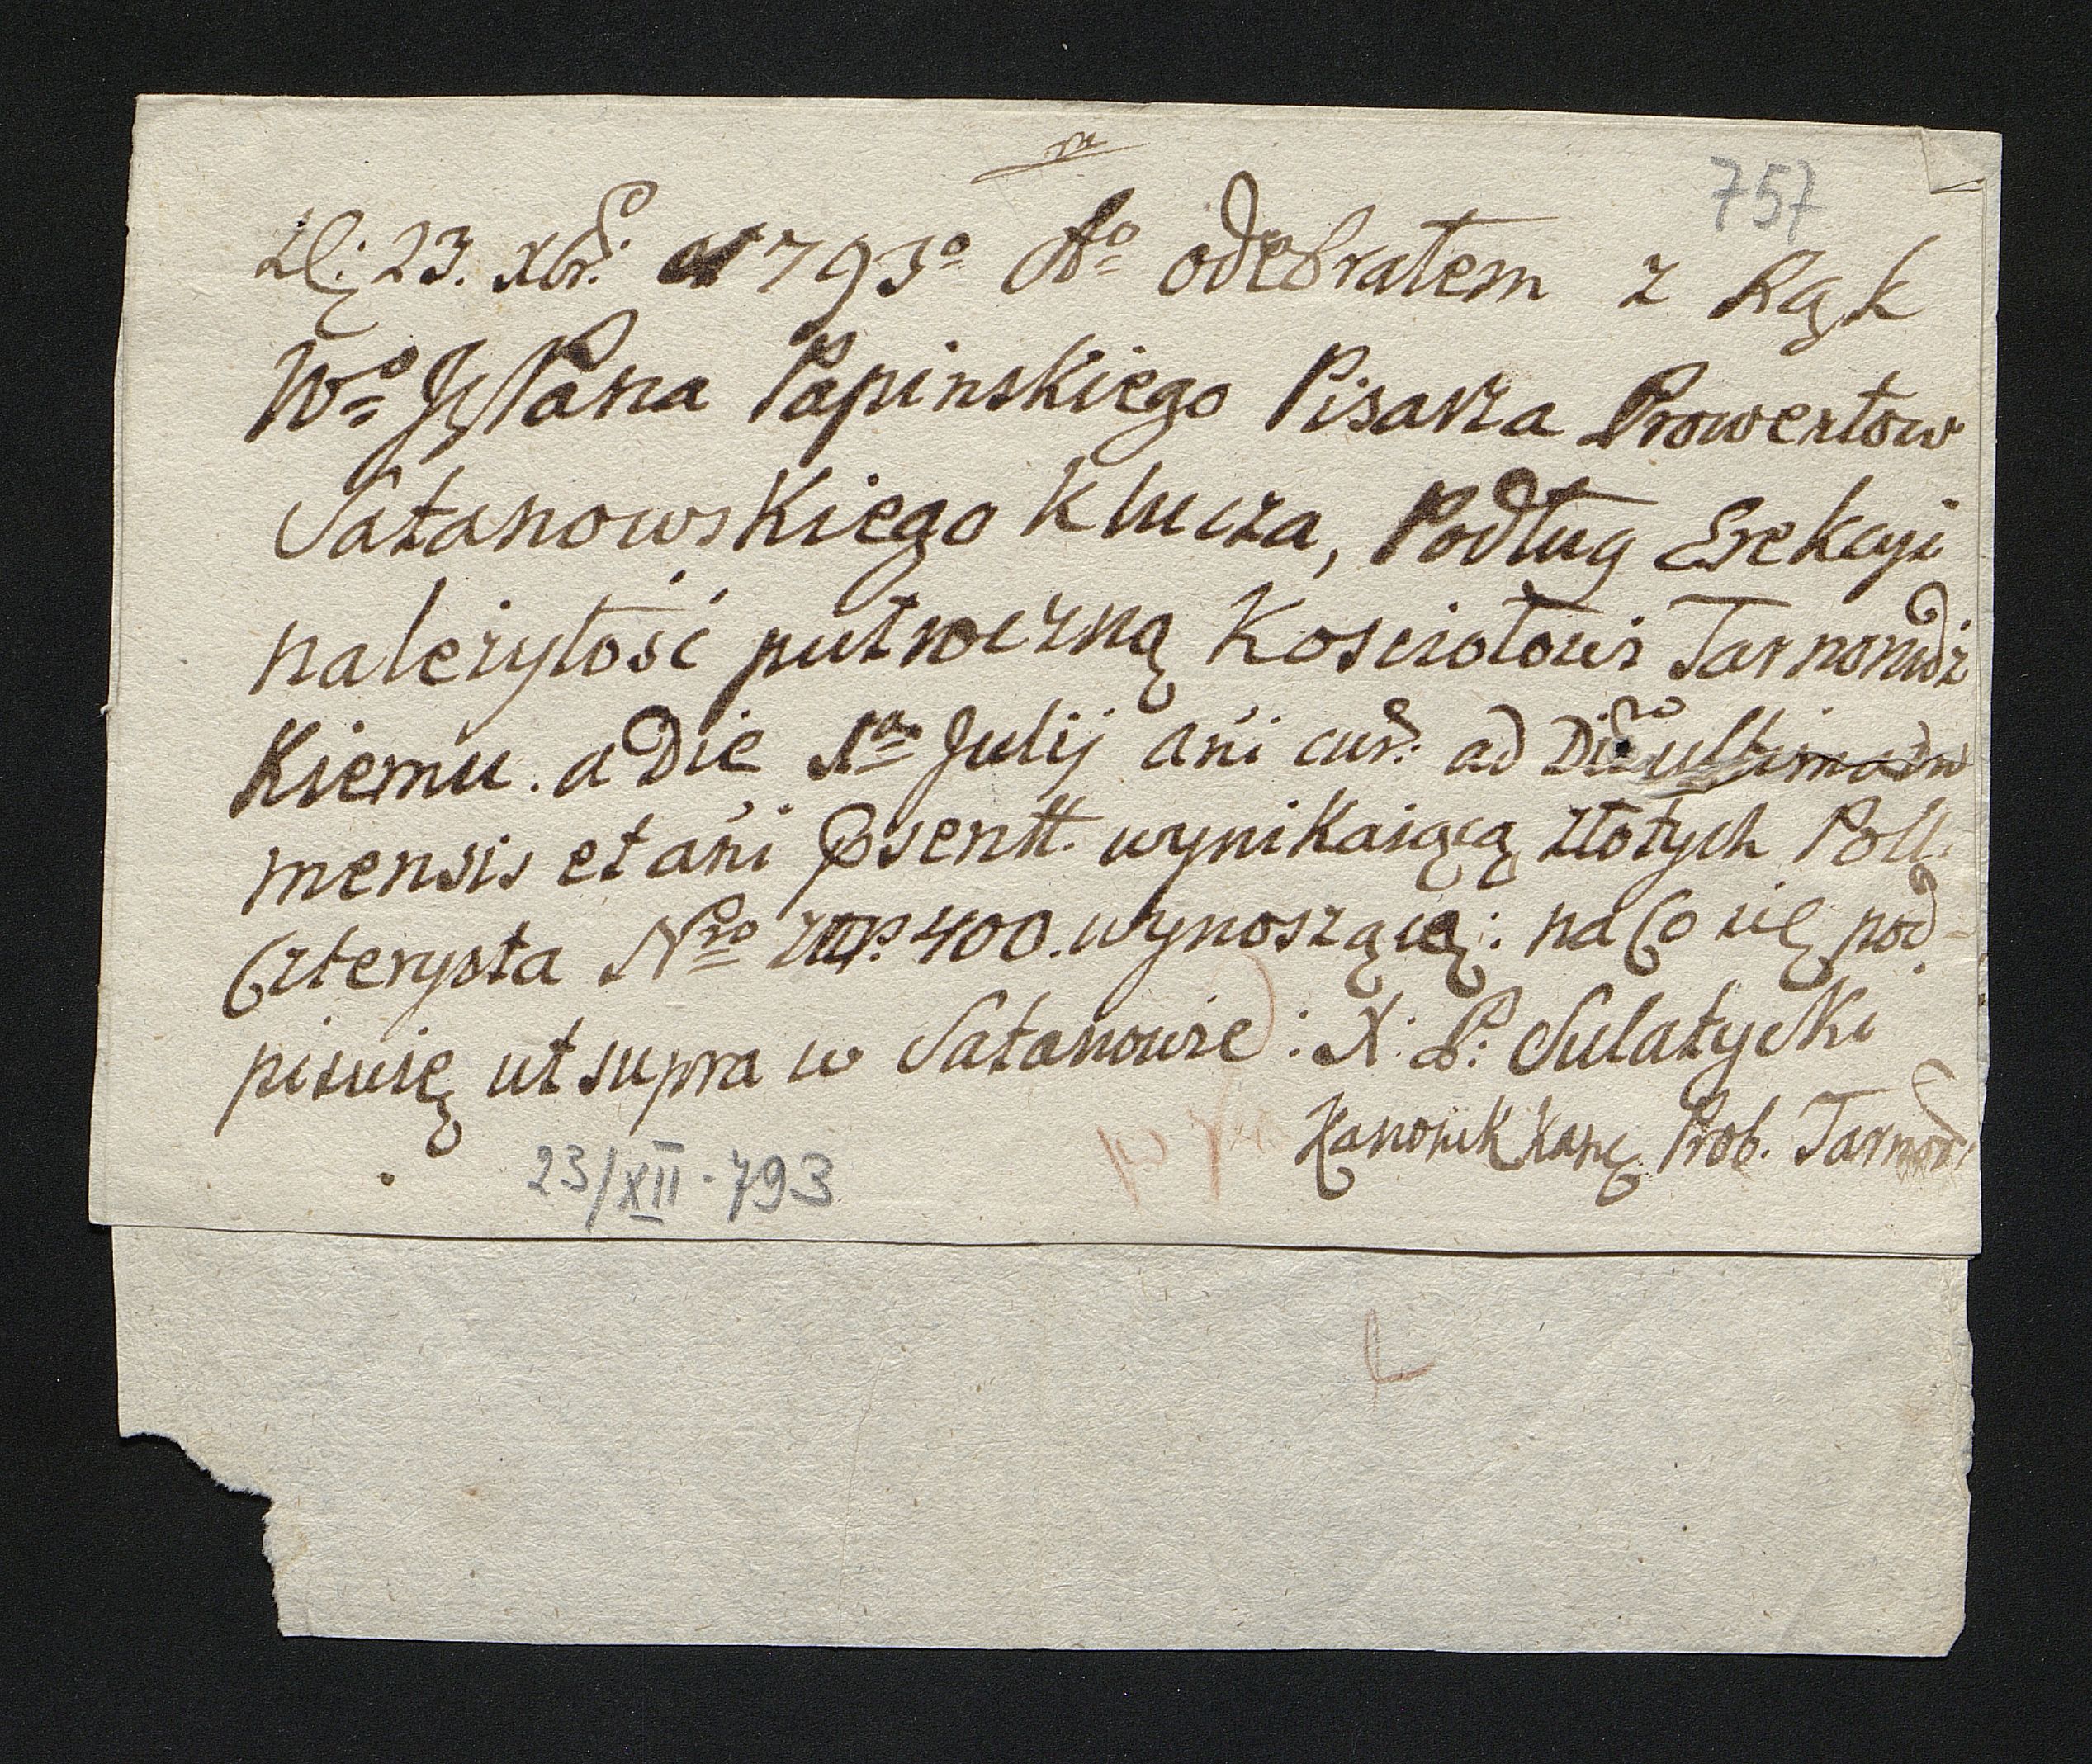 757
23. Xbr. 1793° A° odebrałem z Rąk
W° Jp Pana Papinskiego Pisarza Prowentow
Satanowskiego Klucza, Podług Erekcyi
nalezytość pułroczną Kosciołowi Tarnorudz
Kiemu. a Die 1ma Julij añi cur. ad Diem ultimam
mensis et añi Psentt. wynikaiącą złotych Poll.
Czterysta Nro złłp. 400. wynoszącą: na Co się pod-
pisuię ut supra w Satanowie: X: P: Sulatycki
Kanonik Prob. Tarnor
23/XII-793